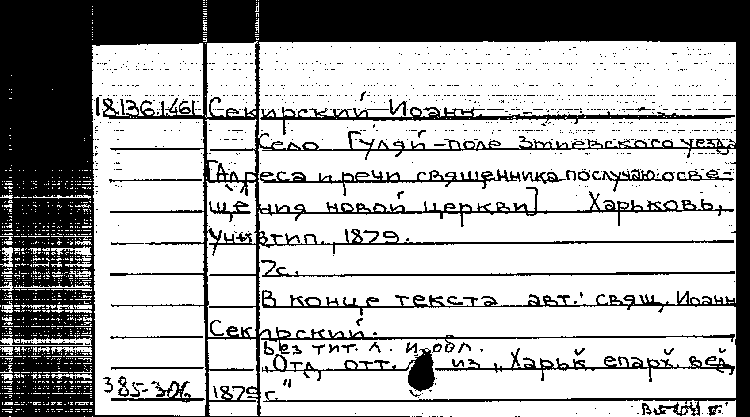 18.136.1.461 Секирский Иоанн.
Село Гуляй-поле Змиевского уезда
[Адреса и речи священника по случаю осве-
щения новой церкви]. Харьковъ,
Унив тип., 1879.
7с.
В конце текста авт.: свящ. Иоанн
Секирский.
Без тит. л. и обл.
"Отд. отт. из "Харьк. епарх. вед."
385-306 1879 г."